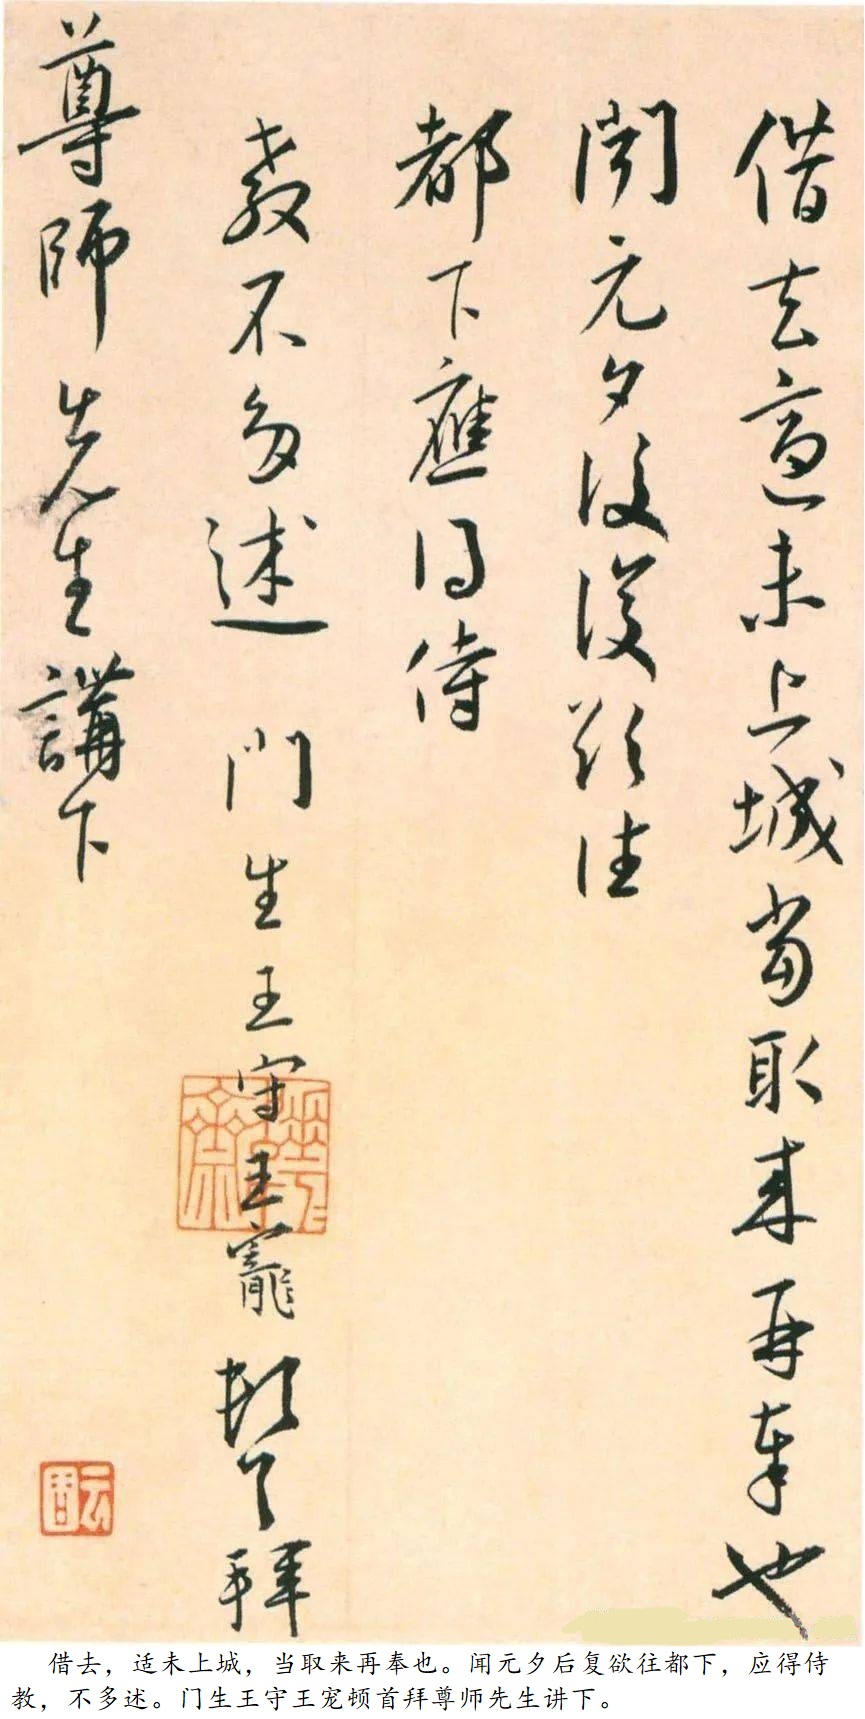 借去適未上城當取來再奉也
聞元夕後復欲往
都下應得侍
教不多述 門生王守王寵頓首拜
尊師先生講下
借去，适未上城，当取来再奉也。闻元夕后复欲往都下，应得侍
教，不多述。门生王守王宠顿首拜尊师先生讲下。